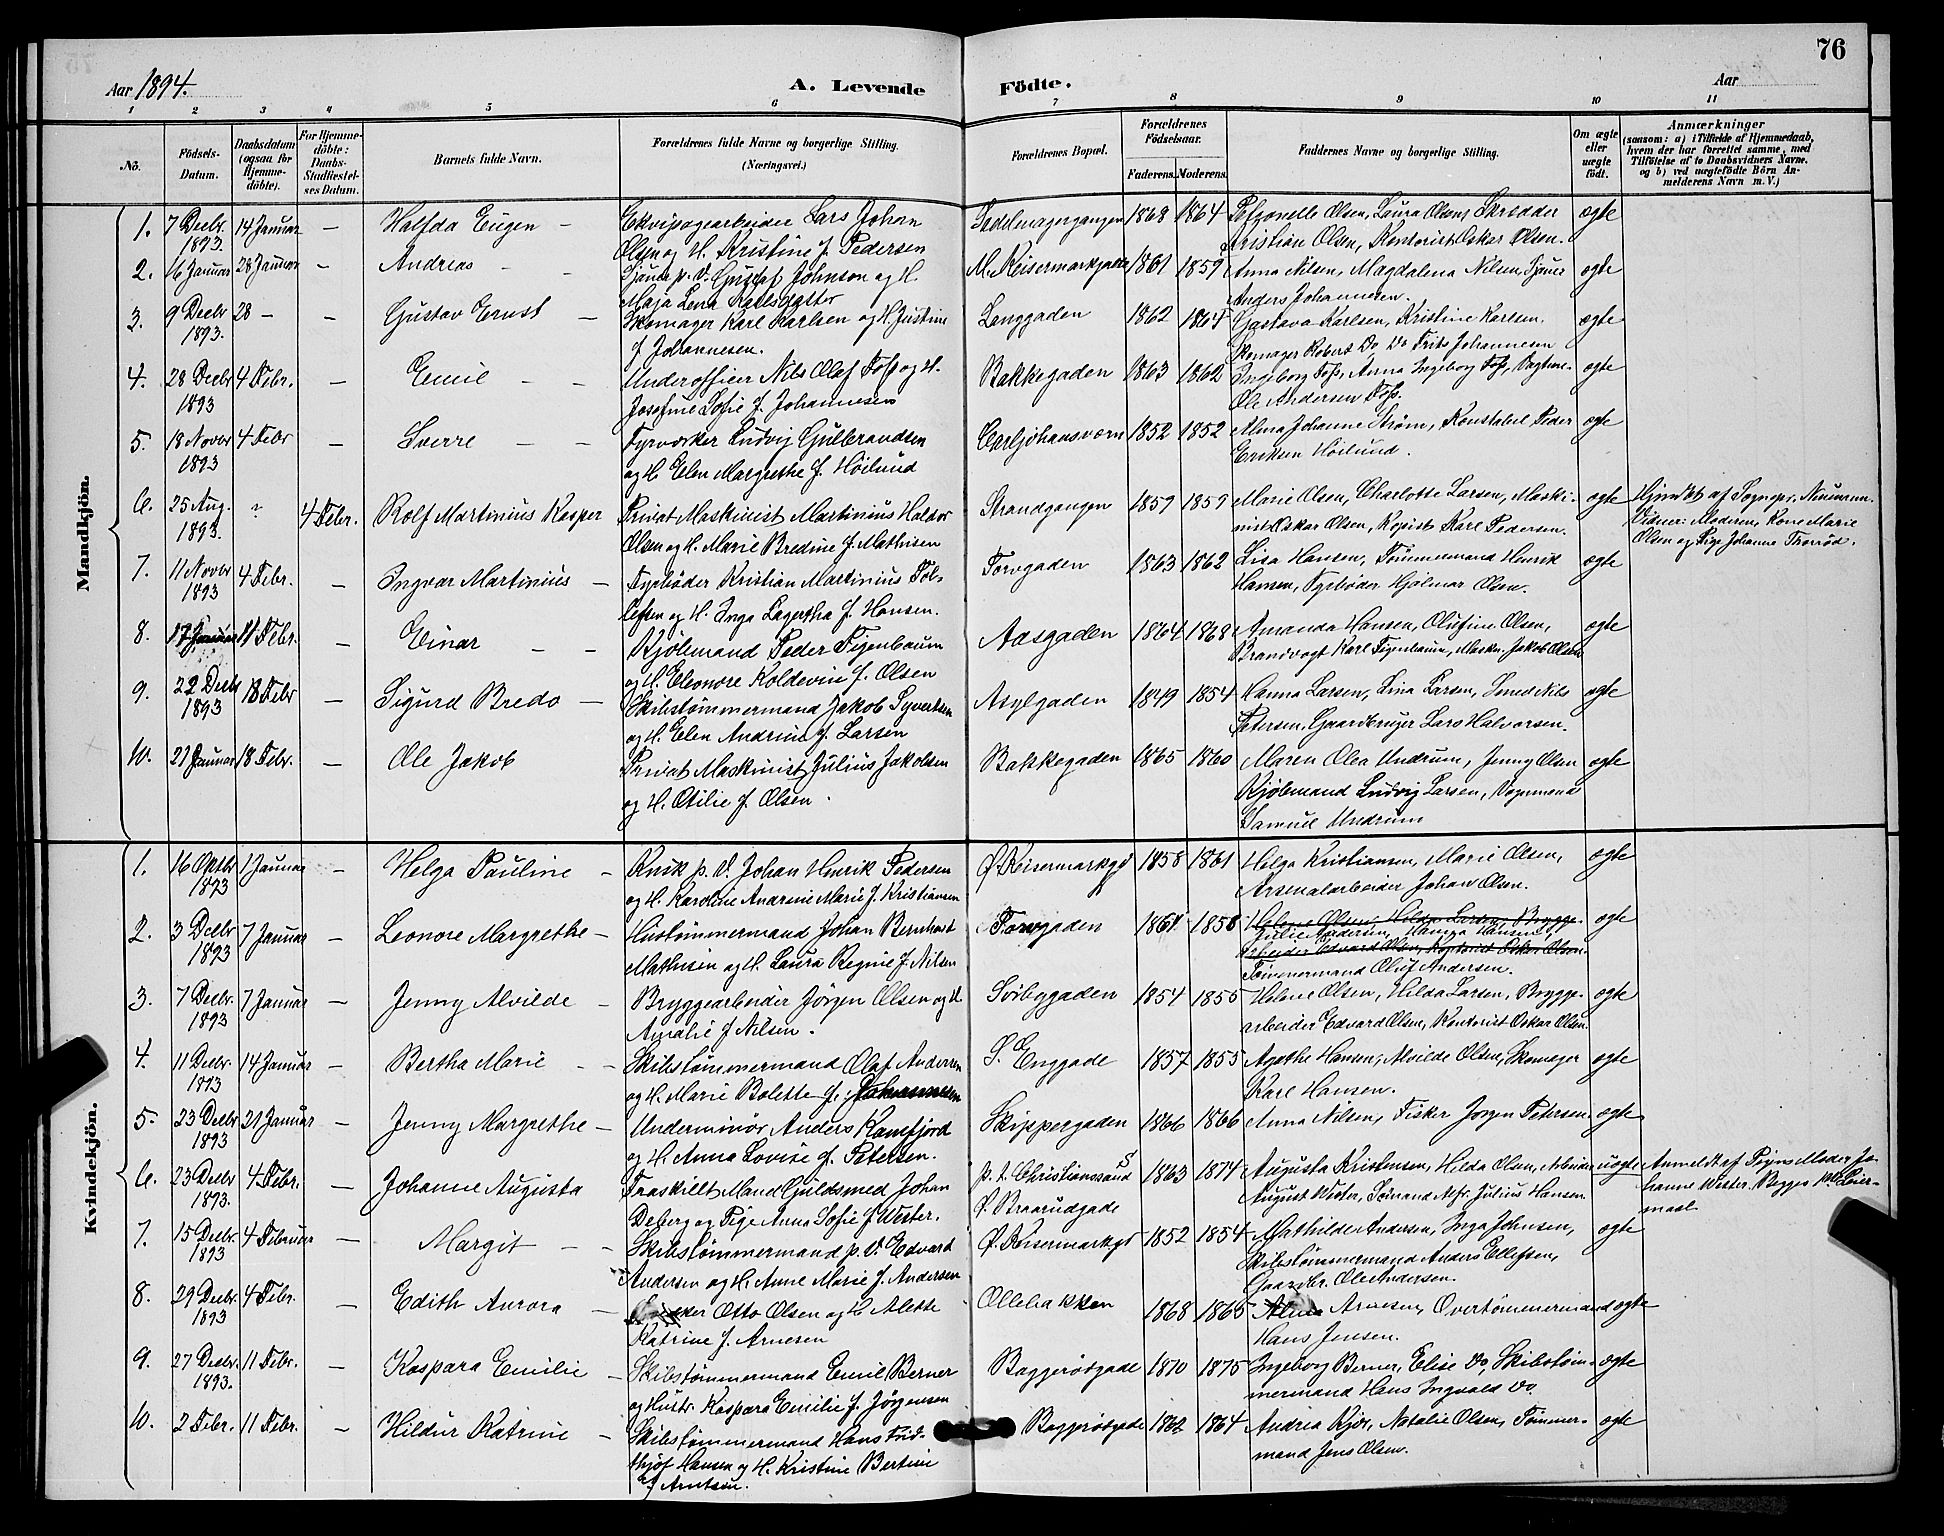 76
Aar 1894.
A. Levende
Födte.
Aar
1 2 3 4 5 6 7 8 9 10 11
No.
Födsels-
Datum.
Daabsdatum
(ogsaa for
Hjemme-
döbte).
For Hjemme-
döbte:
Daabs-
Stadfæstel-
ses Datum.
Barnets fulde Navn.
Forældrenes fulde Navne og borgerlige Stilling.
(Næringsvei.)
Forældrenes Bopæl.
Forældrenes
Födselsaar.
Faderens. Moderens.
Faddernes Navne og borgerlige Stilling.
Om ægte
eller
uægte
födt.
Anmærkninger
(saasom: a) i Tilfælde af Hjemmedaab,
hvem der har forrettet samme, med
Tilföielse af to Daabsvidners Navne.
og b) ved uægtefödte Börn An-
melderens Navn m. V.)
Mandkjön.
1. 7 Decbr 1893. 14 Januar — Halfda Eugen — Ekvipagearbeider Lars Johan
Olsen og H. Kristine f. Pedersen
Sadelmagergangen 1868 1864 Petronelle Olsen, Laura Olsen, Skrædder
Kristian Olsen, Kontorist Oskar Olsen. ægte
2. 16 Januar 28 Januar — Andreas — Gustaf Johnson og H.
Maja Lena Karlsdatter
M. Keisermarkgade 1861 1859 Anna Nilsen, Magdalena Nilsen, Tjener
Anders Johannesen. ægte
3. 9 Decbr 1893. 28 — — Gustav Ernst — Skomager Karl Karlsen og H. Justine
f Johannesen.
Langgaden 1862 1864 Gustava Karlsen, Kristine Karlsen,
Skomager Robert Do, Do Frits Johannesen ægte
4. 28 Decbr 1893 4 Febr. — Emil — Underofficer Nils Olaf Foss og H.
Josefine Sofie f. Johannesen
Bakkegaden 1863 1862 Ingeborg Foss, Anna Ingeborg Foss, Vagtm.
Ole Andersen Foss. ægte
5. 18 Novbr 1893 4 Febr — Sverre — Fyrvorker Ludvig Gulbrandsen
og H. Elen Margrethe f. Höilund
Carljohansværn 1852 1852 Alma Johanne Strøm, Konstabel Peder
Eriksen Höilund. ægte
6. 25 Aug. 1893. ? 4 Febr. Rolf Martinius Kasper Privat Maskinist Martinius Haldor
Olsen og H. Marie Bredine f. Mathisen
Strandgangen 1859 1859 Marie Olsen, Charlotte Larsen, Maski-
nist Oskar Olsen, Kopist Karl Pedersen. ægte
Hjmdbt af Sognepr. Neumann.
Vidner: Moderen, Kone Marie
Olsen og Pige Johanne Thorröd.
7. 11 Novbr 1893 4 Febr. — Ingvar Martinius — Fyrbøder Kristian Martinius Tol-
lefsen og H. Inga Lagertha f. Hansen.
Torvgaden 1863 1862 Lisa Hansen, Tömmermand Henrik
Hansen, Fyrbøder Hjalmar Olsen. ægte
8. 17 Januar 11 Febr. — Einar — Kjölemand Peder Figenbaum
og H. Eleonore Koldevin f. Olsen
Aasgaden 1864 1868 Amanda Hansen, Olufine Olsen,
Brandvogt Karl Figenbaum, Maskn. Jakob Olsen ægte
9. 22 Decbr 1893 18 Febr — Sigurd Bredo — Skibstømmermand Jakob Syvertsen
og H. Elen Andrine f. Larsen
Asylgaden 1849 1854 Hanna Larsen, Lina Larsen, Smed Nils
Petersen, Gaardbruger Lars Halvorsen. ægte
10. 21 Januar 18 Febr. — Ole Jakob Privat Maskinist Julius Jakobsen
og H. Otilie f. Olsen.
Bakkegaden 1865 1860 Maren Olea Undrum, Jenny Olsen
Kjölemand Ludvig Larsen, Vognmand
Samuel Undrum ægte
Kvindekjön.
1. 16 Oktbr 1893 1 Januar — Helga Pauline — Kusk p. V. Johan Henrik Pedersen
og H. Karoline Andrine Marie f. Kristiansen
Ø. Keisermarkgd 1858 1861 Helga Kristiansen, Marie Olsen,
Arsenalarbeider Johan Olsen. ægte
2. 3 Decbr 1893 7 Januar — Leonore Margrethe — Hustømmermand Johan Bernhart
Mathisen og H. Laura Regine f. Nilsen
Torvgaden 1861 1858 Helene Olsen, Hilda Larsen, Brygge-
Julie Andersen, Hanna Hansen
arbeider Edvard Olsen, Kontorist Oskar Olsen.
Tömmermand Oluf Andersen. ægte
3. 7 Decbr. 1893 7 Januar — Jenny Alvilde — Bryggearbeider Jörgen Olsen og H.
Amalie f Nilsen.
Svibygaden 1854 1855 Helene Olsen, Hilda Larsen, Brygge-
arbeider Edvard Olsen, Kontorist Oskar Olsen. ægte
4. 11 Decbr. 1893 14 Januar — Bertha Marie — Skibstømmermand Olaf Andersen
og H. Marie Bolette f. Johannesen
S. Enggade 1857 1855 Agethe Hansen, Alvilde Olsen, Skomager
Karl Hansen. ægte
5. 23 Decbr 1893 21 Januar — Jenny Margrethe — Underminör Anders Kamfjord
og H. Anna Lovise f. Petersen.
Skippergaden 1866 1866 Anna Nilsen, Fisker Jörgen Petersen. ægte
6. 23 Decbr 1893. 4 Febr. — Johanne Augusta Fraskillt Mand Guldsmed Johan
Deberg og Pige Anna Sofie f Wester.
p. t. Christianssand
Ø. Braarudgade 1863 1874 Augusta Kristensen, Hilda Olsen, Arbeider
August Wester, Sömand Alfr. Julius Hansen uægte
Anmeldt af Pigens Moder Jo-
hanne Wester. Begges 1ste Leier-
maal
7. 15 Decbr. 1893 4 Februar — Margit — Skibstømmermand p. V. Edvard
Andersen og H. Anne Marie f. Andersen
Ø. Keisermarkgd 1852 1854 Mathilde Andersen, Inga Johnsen,
Skibstømmermand Anders Ellefsen,
Gaardbr. Ole Andersen. ægte
8. 29 Decbr. 1893 4 Febr. — Edith Aurora — Otto Olsen og H Alette
Katrine f. Arnesen
Ollebakken 1868 1865 Arnesen, Overtømmermand
Hans Jensen. ægte
9. 27 Decbr. 1893. 11 Febr. — Kaspara Emilie — Skibstømmermand Emil Berner
og Hustr. Kaspara Emilie f. Jörgensen
Baggerödgade 1870 1875 Ingeborg Berner, Elise Do, Skibstøm-
mermand Hans Ingvald Do. ægte
10. 2 Febr. 11 Febr. — Hildur Katrine — Skibstømmermand Hans Frid-
thjof Hansen og H. Kristine Bertine
f Arntsen.
Baggerödgade 1862 1864 Andrea Kjær, Natalie Olsen, Tömmer-
mand Jens Olsen. ægte